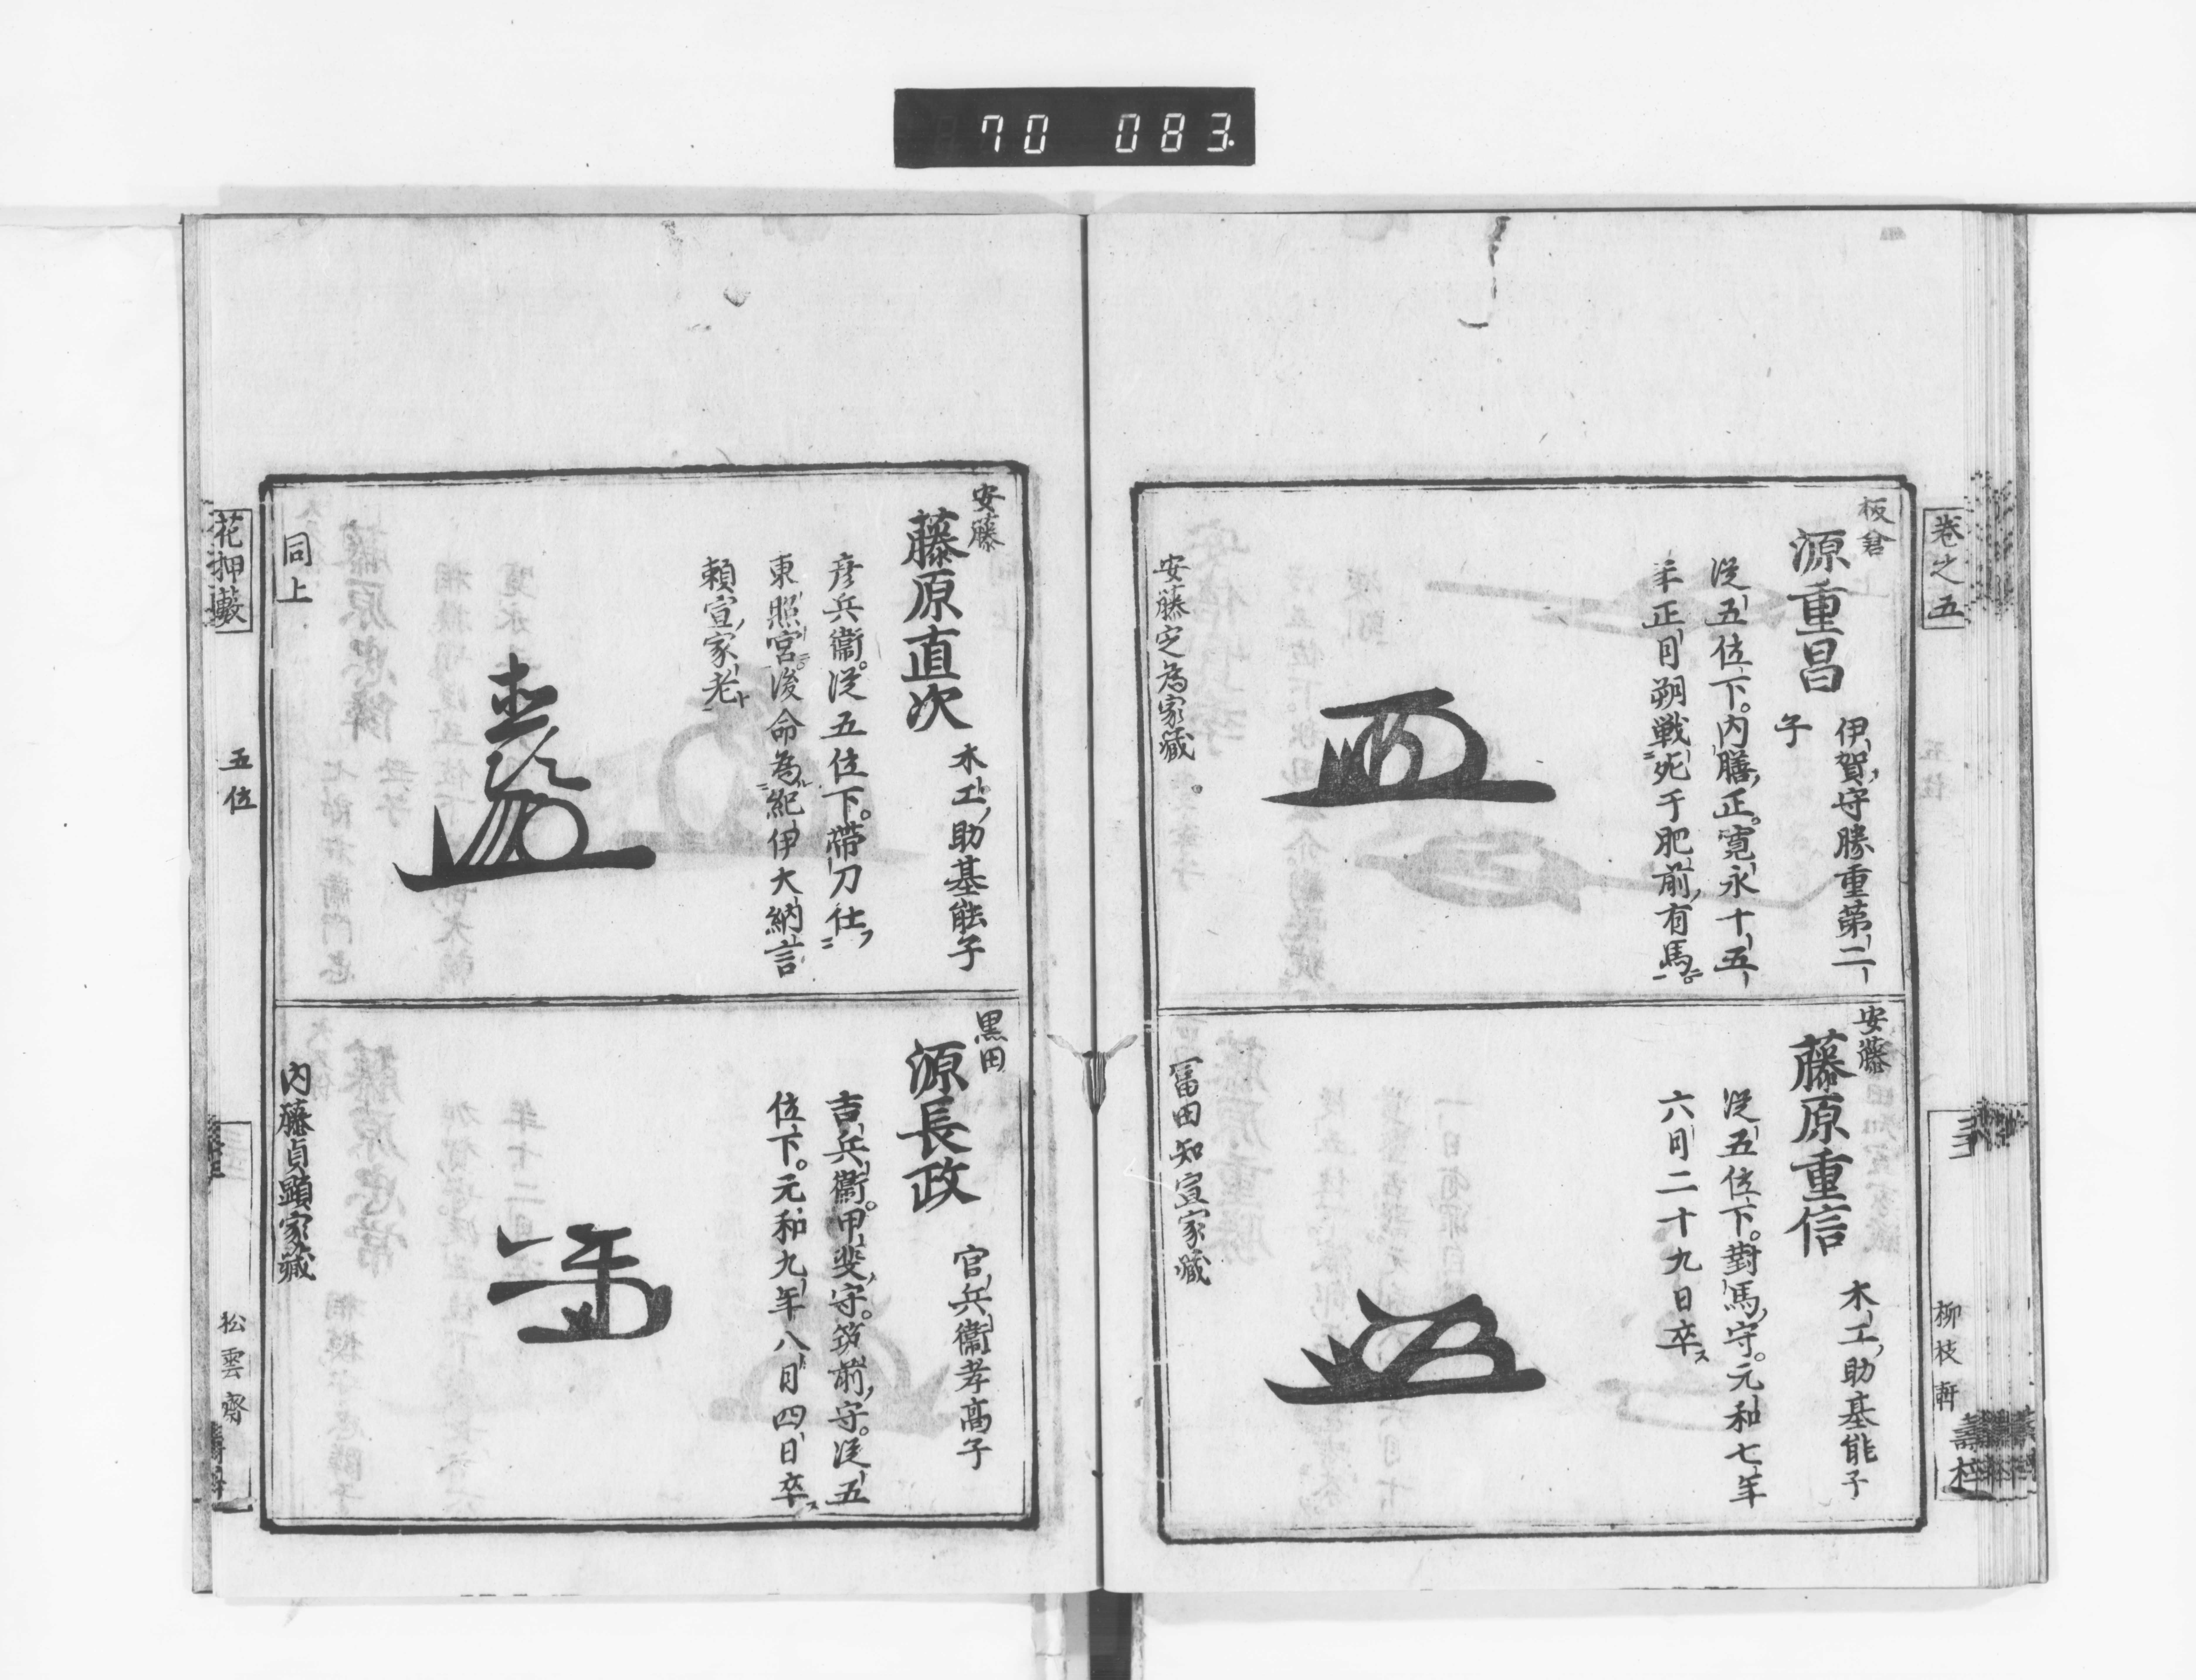 70 083
卷之五
柳枝軒
板倉
源重昌
伊賀守勝重第二
子
従五位下。内膳正。寛永十五
年正月朔戦死于肥前有馬
安藤定為家蔵
安藤
藤原重信
木工助基能子
従五位下。對馬守。元和七年
六月二十九日卒
冨田知宣家蔵
安藤
藤原直次
木工助基能子
彦兵衞。従五位下。帶刀仕
東照宮。後命為紀伊大納言
頼宣家老
同上
黒田
源長政
官兵衞孝高子
吉兵衞。甲斐守。筑前守。従五
位下。元和九年八月四日卒
内藤貞顕家蔵
花押藪
五位
松雲齋